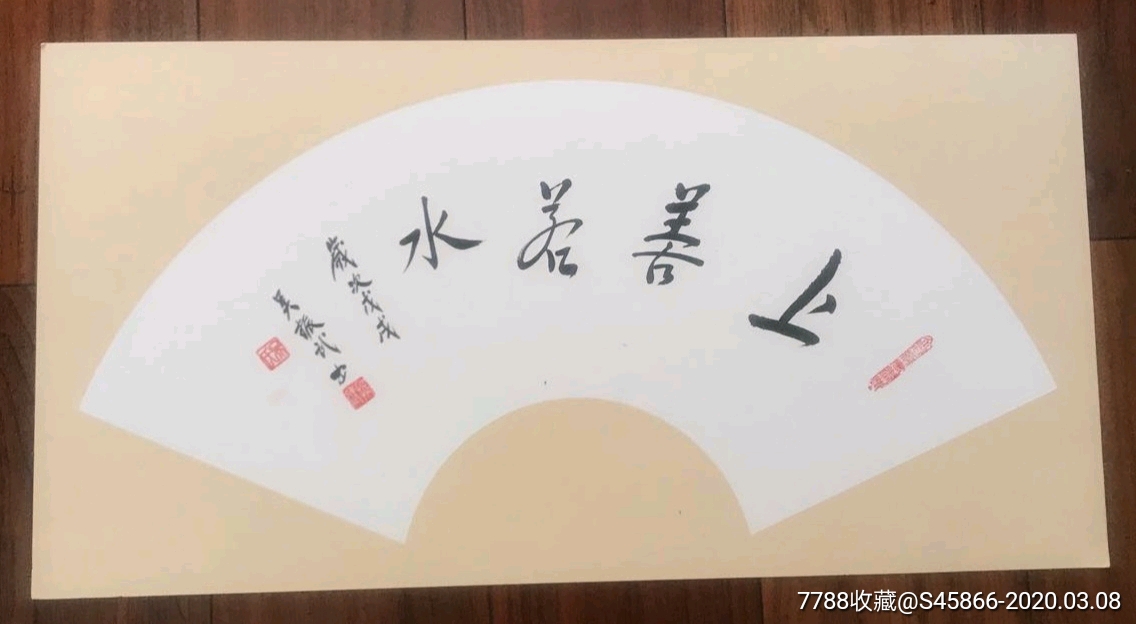 上善若水
歲次戊戌
吴振武书
7788收藏@S45866-2020.03.08